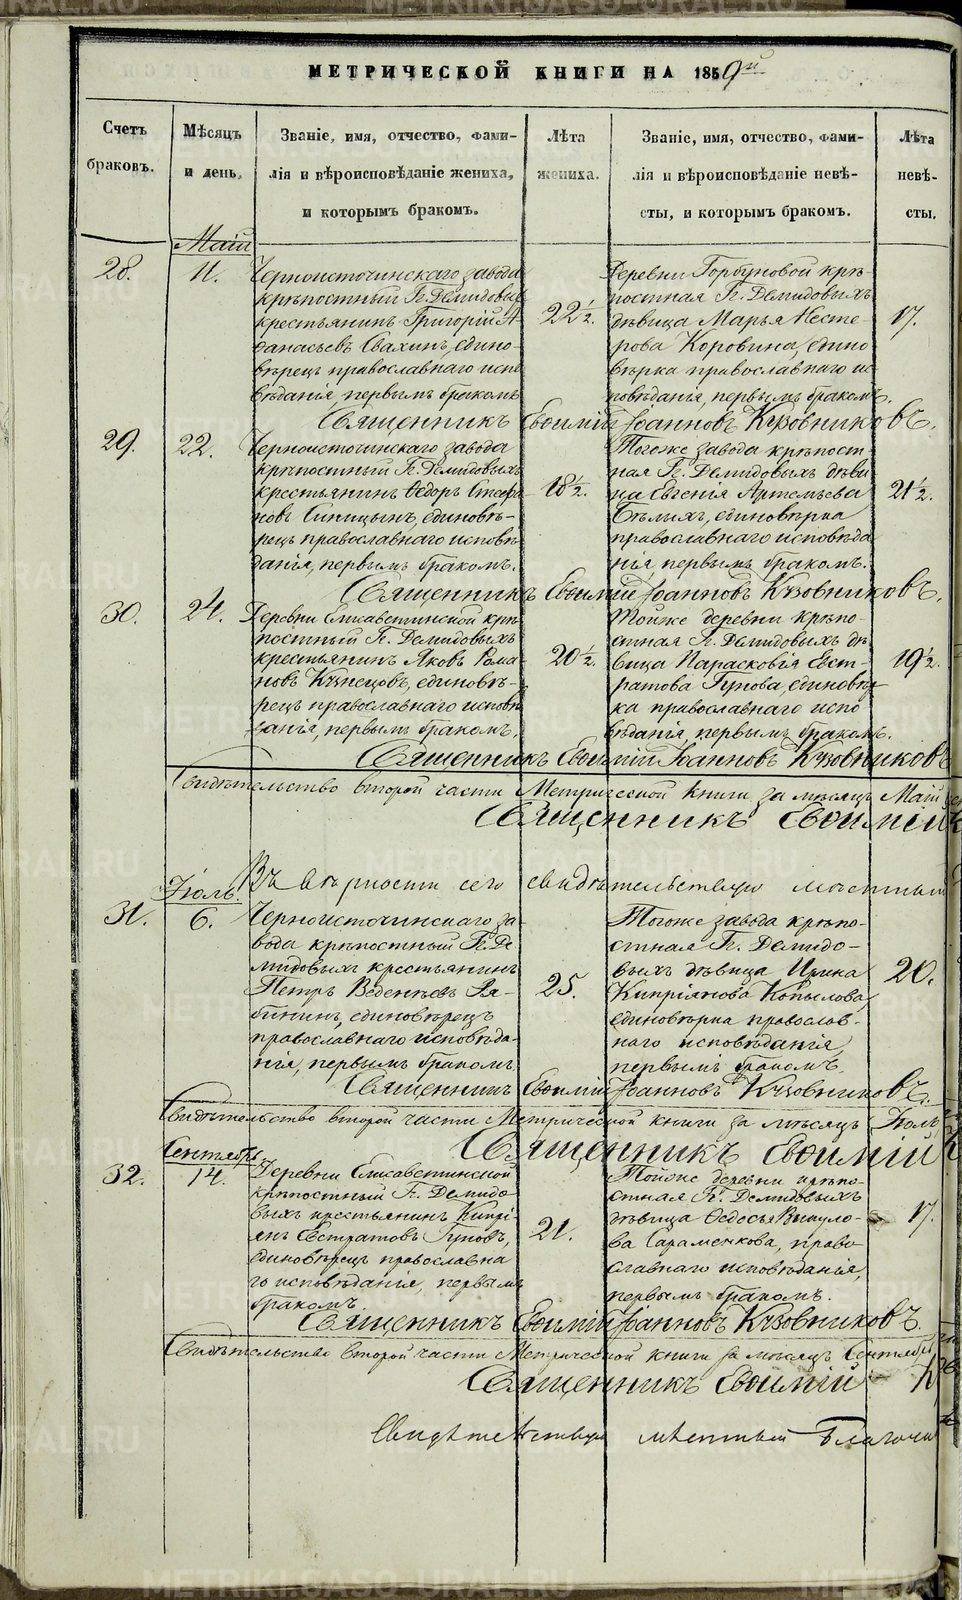 МЕТРИЧЕСКОЙ КНИГИ НА 1859й
Счетъ
браковъ.
Мѣсяцъ
и день.
Званіе, имя, отчество, фами-
лія и вѣроисповѣданіе жениха,
и которымъ бракомъ.
Лѣта
жениха.
Званіе, имя, отчество, фами-
лія и вѣроисповѣданіе невѣ-
сты, и которымъ бракомъ.
Лѣта
невѣ-
сты.
Маій
28.
11.
Черноисточинскаго завода
крѣпостный Гг. Демидовыхъ
крестьянинъ Григорій А-
ѳанасьевъ Свахинъ, едино-
вѣрецъ православнаго испо
вѣданія, первымъ бракомъ
22½.
Деревни Горбуновой крѣ-
постная Гг. Демидовыхъ
дѣвица Марья Несте-
рова Коровина, едино
вѣрка православнаго ис
повѣданія, первымъ бракомъ.
17.
Священникъ Евѳимій Іоанновъ Кузовниковъ.
29.
22.
Черноисточинскаго завода
крѣпостный Гг. Демидовыхъ
крестьянинъ Ѳедоръ Стефа
новъ Синицынъ, единовѣ-
рецъ православнаго исповѣ
данія, первымъ бракомъ.
18½.
Тогоже завода крѣпост-
ная Гг. Демидовыхъ дѣви
ца Евгенія Артемьева
Бѣлыхъ, единовѣрка
православнаго исповѣда
нія, первымъ бракомъ.
21½.
Священникъ Евѳимій Іоанновъ Кузовниковъ.
30.
24.
Деревни Елисаветинской крѣ
постный Гг. Демидовыхъ
крестьянинъ Яковъ Рома
новъ Кузнецовъ, единовѣ-
рецъ православнаго исповѣ
данія, первымъ бракомъ.
20½.
Тойже деревни крѣпо-
стная Гг. Демидовыхъ дѣ
вица Парасковія Евст-
ратова Гунова, единовѣр
ка православнаго испо
вѣданія, первымъ бракомъ.
19½.
Священникъ Евѳимій Іоанновъ Кузовниковъ
Свидѣтельство второй части Метрической книги за мѣсяцъ Маій
Священникъ Евѳимій
Въ вѣрности сего свидѣтельствую мѣстный
Іюль.
31.
6.
Черноисточинскаго за
вода крѣпостный Гг. Де
мидовыхъ крестьянинъ
Петръ Веденѣевъ Ря-
бининъ, единовѣрецъ
православнаго исповѣда-
нія, первымъ бракомъ.
25.
Тогоже завода крѣпо-
стная Гг. Демидо-
выхъ дѣвица Ирина
Кипріянова Копылова,
единовѣрка православ-
наго исповѣданія,
первымъ бракомъ.
20.
Священникъ Евѳимій Іоанновъ Кузовниковъ.
Свидѣтельство второй части Метрической книги за мѣсяцъ Іюль
Священникъ Евѳимій
Сентябрь
32.
14.
Деревни Елисаветинской
крѣпостный Гг. Демидо
выхъ крестьянинъ Кипрі-
янъ Евстратовъ Гуновъ,
единовѣрецъ православна
го исповѣданія, первымъ
бракомъ.
21.
Тойже деревни крѣпо-
стная Гг. Демидовыхъ
дѣвица Ѳедосья Викуло-
ва Сараменкова, право
славнаго исповѣданія,
первымъ бракомъ.
17.
Священникъ Евѳимій Іоанновъ Кузовниковъ.
Свидѣтельство второй части Метрической книги за мѣсяцъ Сентябрь
Священникъ Евѳимій К
Свидѣтельствую мѣстный Благочин
METRIKI.GASO-URAL.RU